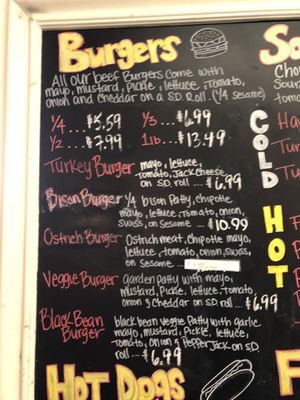 Burgers
All our beef Burgers Come with
mayo, mustard, Pickle, lettuce, Tomato,
onion and cheddar on a S.D. Roll. (1/4 sesame)
1/4 ... $5.59 1/3 ... $6.99
1/2 ... $7.99 1lb ... $13.49
Turkey Burger mayo, lettuce,
Tomato, Jack cheese
on SD. roll .... $6.99
Bison Burger 1/4 bison Patty, chipotle
mayo, lettuce, Tomato, onion,
Swiss, on Sesame ... $10.99
Ostrich Burger Ostrich meat, Chipotle mayo,
lettuce, tomato, onion, Swiss,
on Sesame ...
Veggie Burger garden Patty with mayo,
mustard, Pickle, lettuce, tomato
onion & Cheddar on SD roll ... $6.99
Black Bean Burger black bean veggie Patty with garlic
mayo, mustard, Pickle, lettuce,
Tomato, onion & Pepper Jack on SD
roll .... $6.99
Hot Dogs
COLD
HOT